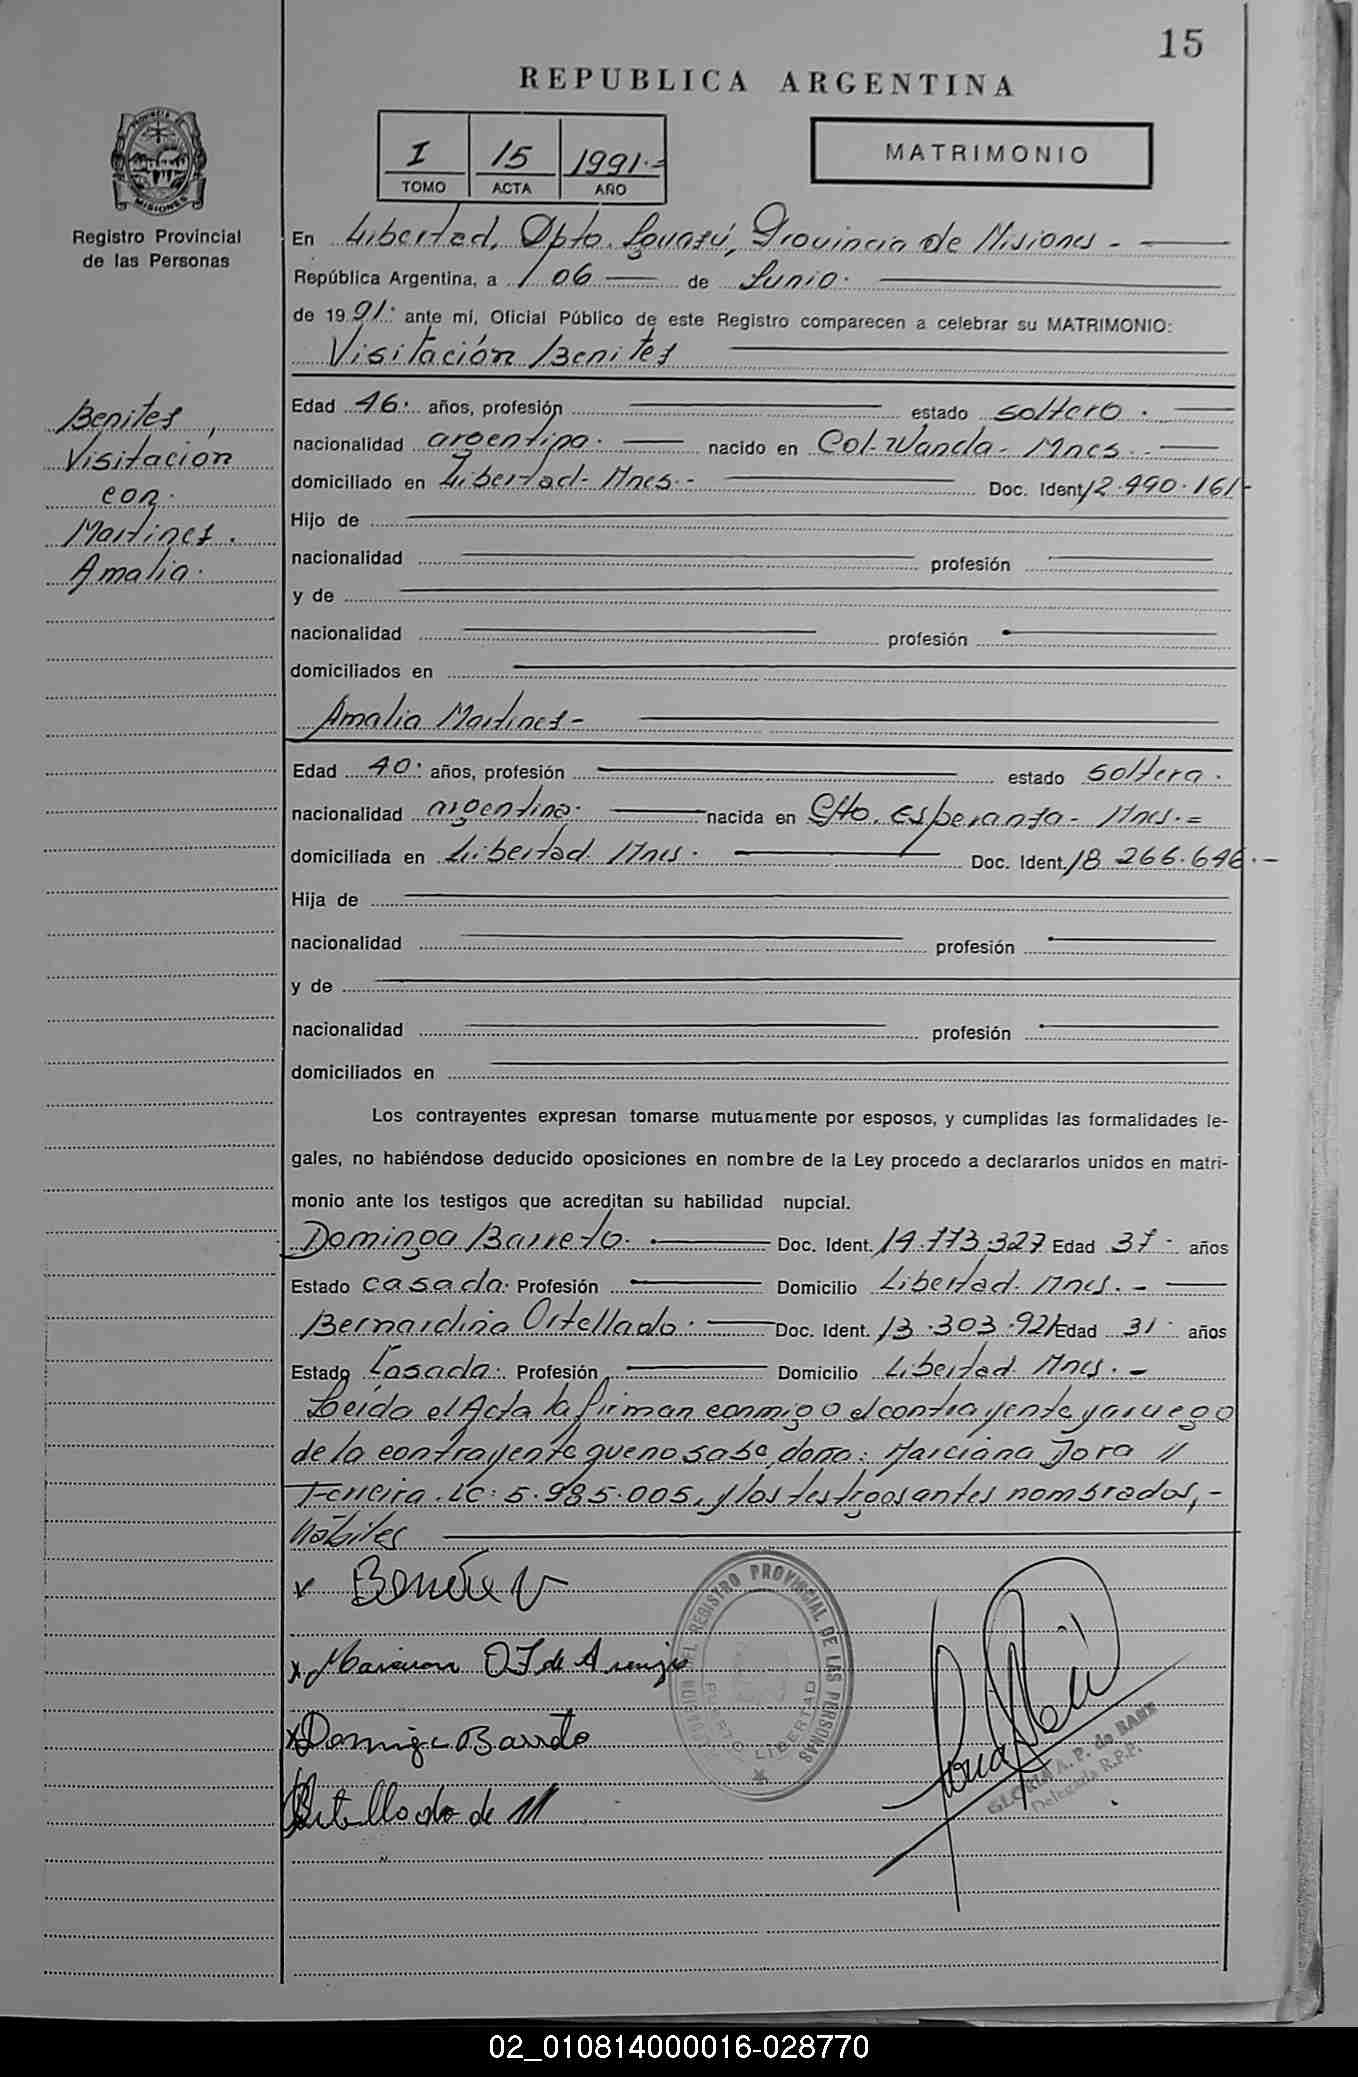 15
REPUBLICA ARGENTINA
I 15 1991.=
TOMO ACTA AÑO
MATRIMONIO
PROVINCIA DE MISIONES
Registro Provincial
de las Personas
En Libertad, Dpto. Iguazú, Provincia de Misiones -
República Argentina, a 06 de Junio.
de 1991. ante mí, Oficial Público de este Registro comparecen a celebrar su MATRIMONIO:
Visitación Benites
Benites,
Visitacion
con.
Martines.
Amalia.
Edad 46. años, profesión estado soltero.
nacionalidad argentina. nacido en Col. Wanda - Mnes. -
domiciliado en Libertad - Mnes. - Doc. Ident. 12.490.161-
Hijo de
nacionalidad profesión
y de
nacionalidad profesión
domiciliados en
Amalia Martines -
Edad 40. años, profesión estado soltera.
nacionalidad argentina. nacida en Pto. Esperanza - Mnes. =
domiciliada en Libertad. Mnes. Doc. Ident. 18 266.646.-
Hija de
nacionalidad profesión
y de
nacionalidad profesión
domiciliados en
Los contrayentes expresan tomarse mutuamente por esposos, y cumplidas las formalidades le-
gales, no habiéndose deducido oposiciones en nombre de la Ley procedo a declararlos unidos en matri-
monio ante los testigos que acreditan su habilidad nupcial.
Dominga Barreto. Doc. Ident. 14.773.327 Edad 37. años
Estado casada. Profesión Domicilio Libertad. Mnes. -
Bernardina Ortellado. Doc. Ident. 13.303.921 Edad 31. años
Estado Casada. Profesión Domicilio Libertad. Mnes. -
Leída el Acta la firman conmigo el contrayente y a ruego
de la contrayente que no sabe, doña: Marciana Jora //
Ferreira. LC: 5.985.005, y los testigos antes nombrados, -
hábiles
Benites V
x Dominga Barreto
Ortellado de M
REGISTRO PROVINCIAL DE LAS PERSONAS
PUERTO LIBERTAD
GLORIA A. P. de BAEZ
Delegada R.P.P.
02_010814000016-028770